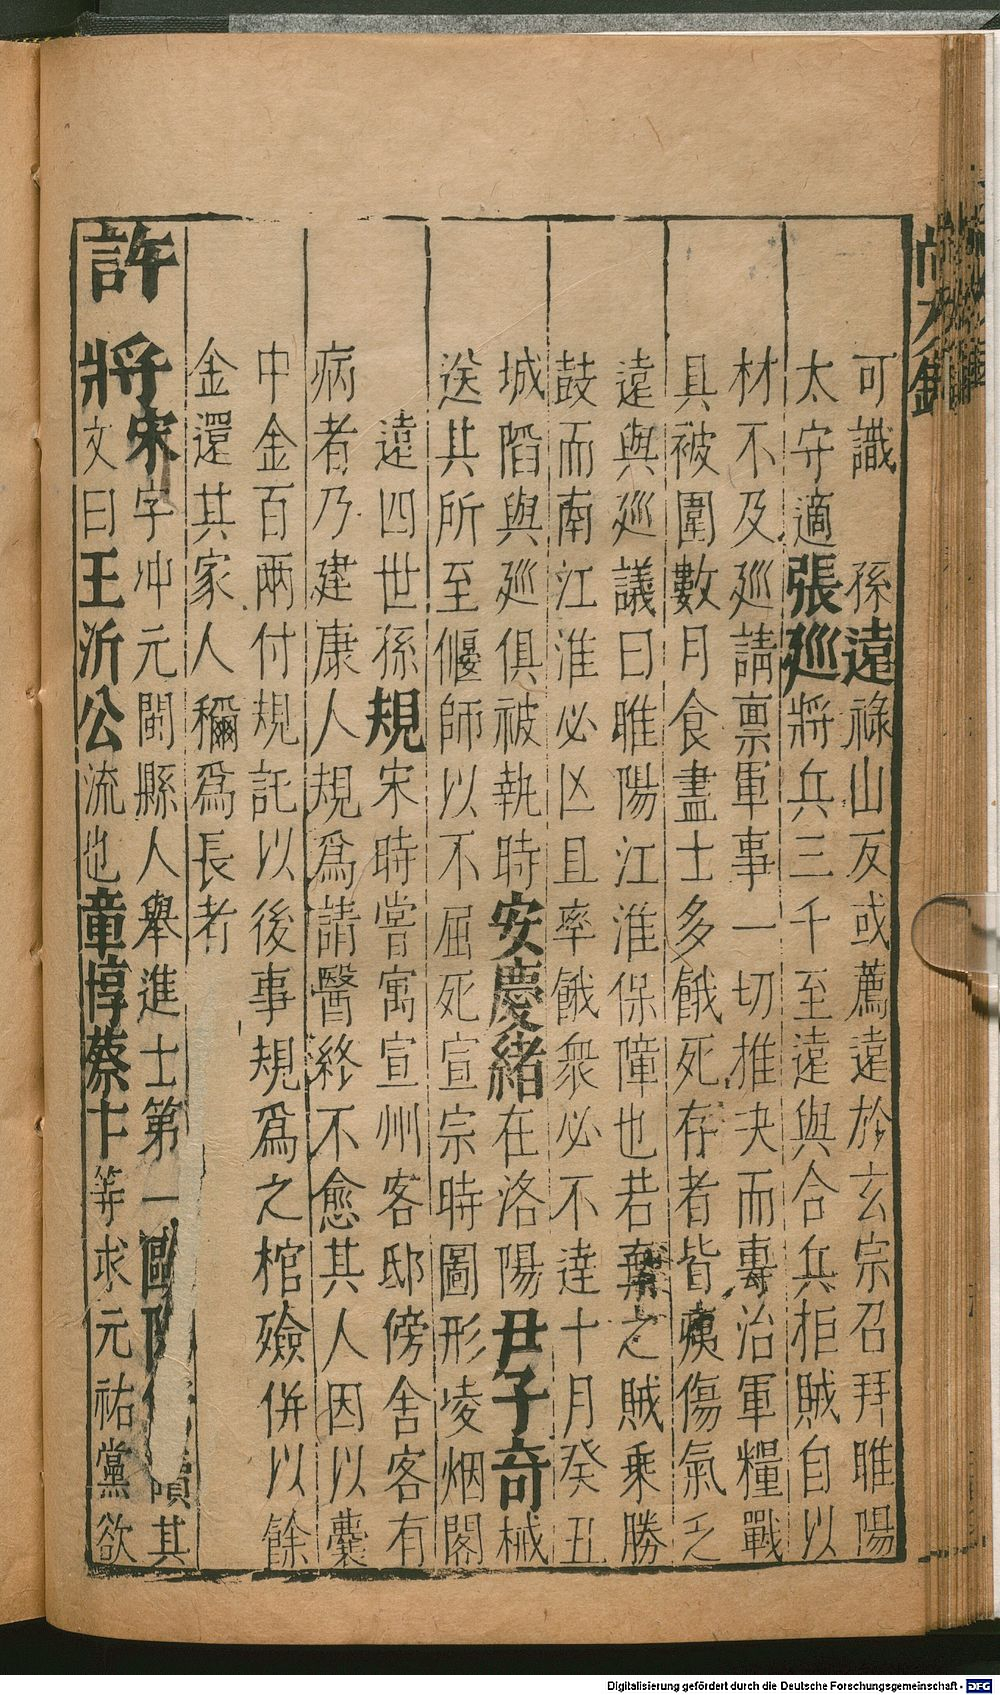 可識　孫遠祿山反或薦遠於玄宗召拜睢陽
太守適張巡將兵三千至遠與合兵拒賊自以
材不及巡請禀軍事一切推决而專治軍糧戰
具被圍數月食盡士多餓死存者皆痍傷氣乏
遠與巡議曰睢陽江淮保障也若棄之賊乘勝
鼓而南江淮必亾且率餓衆必不達十月癸丑
城陷與巡俱被執時安慶緒在洛陽尹子奇械
送其所至偃師以不屈死宣宗時圖形凌烟閣
遠四世孫規宋時嘗寓宣州客邸傍舍客有
病者乃建康人規爲請醫終不愈其人因以囊
中金百兩付規託以後事規爲之棺殮併以餘
金還其家人稱爲長者
許將宋字冲元閩縣人舉進士第一歐陽其
文曰王沂公流也章惇蔡卞等求元祐黨欲
Digitalisierung gefördert durch die Deutsche Forschungsgemeinschaft - DFG